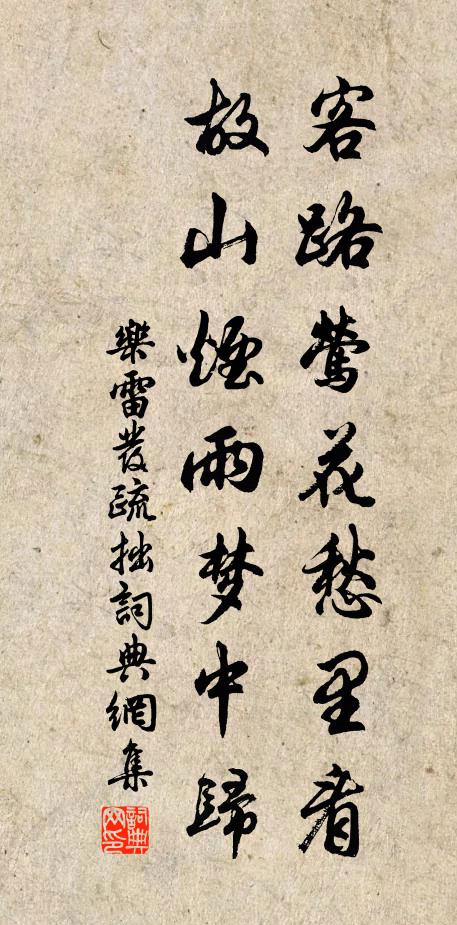 客路鶯花愁里看
故山煙雨梦中歸
樂雷發疏拙詞典網集
詞典網印